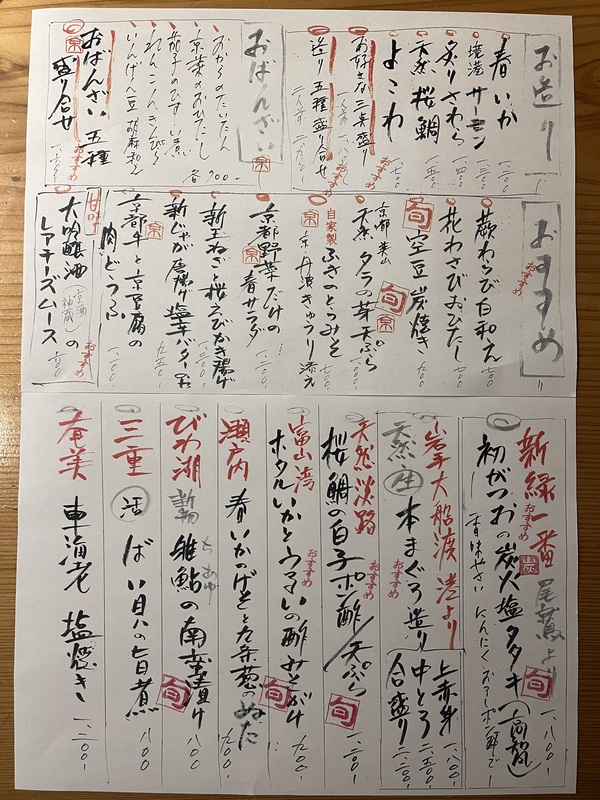 お造り
春いか 一、二〇〇-
境港 サーモン 一、二〇〇-
炙りさわら 一、四〇〇-
天然 桜鯛 一、五〇〇-
よこわ 一、七〇〇-
お好きな三点盛り おすすめ
造り 五種盛り合せ おすすめ
おばんざい 京
おからのたいたん
京菜のおひたし
茄子のひすい煮
れんこんきんぴら
いんげん豆 胡麻和え
各 七〇〇-
京 おばんざい 五種
盛り合せ おすすめ
おすすめ
蕨わらび白和え おすすめ 七〇〇-
花わさびおひたし 七〇〇-
旬 空豆 炭焼き 九〇〇-
京都 美山
天然 タラの芽天ぷら 旬 京 一、〇〇〇-
自家製 ふきのとうみそ 七〇〇-
京 京丹波きゅうり添え
京都野菜だけの
京 春サラダ 一、二〇〇-
新玉ねぎと桜えびかき揚げ 一、三〇〇-
新じゃが唐揚げ 塩辛バターのせ 九五〇-
京 京都牛と京豆腐の
肉どうふ 一、二〇〇-
甘味
大吟醸酒(京酒 神蔵)の
レアチーズムース おすすめ 六〇〇-
新緑一番 尾鷲より
初がつおの炭火塩タタキ(高親) おすすめ 炭 旬 一、八〇〇-
香味やさい にんにく おろしポン酢で
岩手大船渡港より
天然 生 本まぐろ造り おすすめ
上赤身 一、八〇〇-
中とろ 二、五〇〇-
合盛り 二、二〇〇-
天然淡路
桜鯛の白子 ポン酢/天ぷら おすすめ 旬 一、二〇〇-
富山湾
ホタルいかとうるいの酢みそがけ おすすめ 旬 九〇〇-
瀬戸内 春いかのげそと九条葱のぬた 九〇〇-
びわ湖 稚鮎の南蛮漬け ちあゆ 旬 八〇〇-
三重 活 ばい貝の旨煮 八〇〇-
奄美 車海老 塩焼き 一、二〇〇-